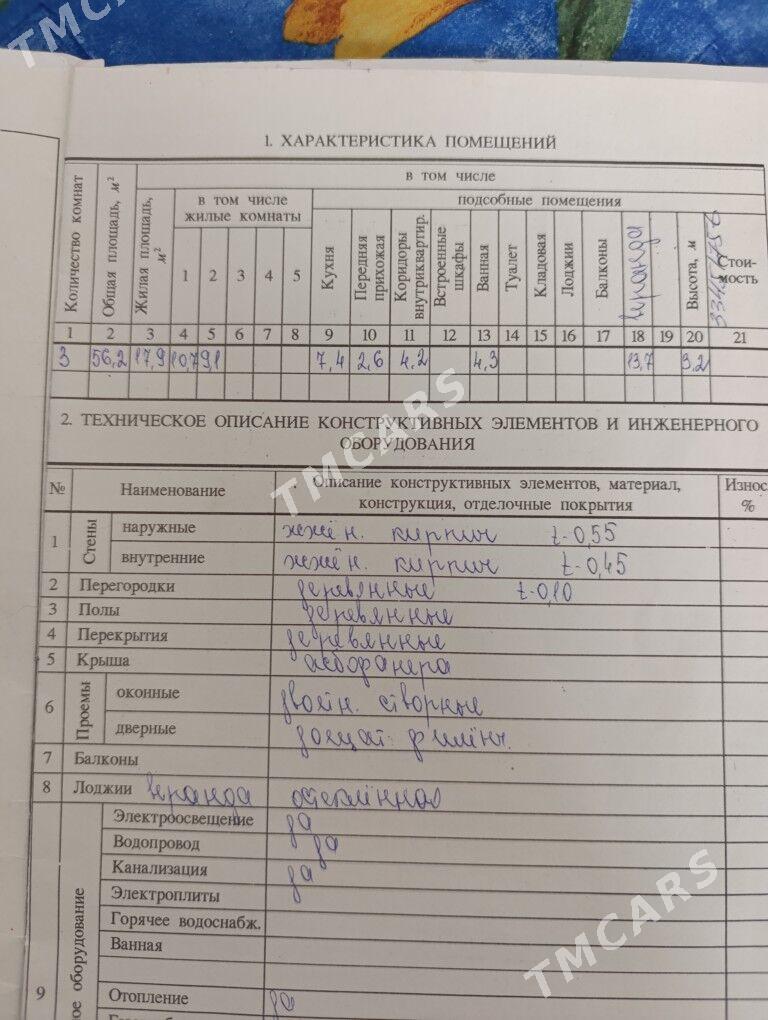 TMCARS
1. ХАРАКТЕРИСТИКА ПОМЕЩЕНИЙ
Количество комнат
Общая площадь, м²
Жилая площадь, м²
в том числе
в том числе жилые комнаты
подсобные помещения
1 2 3 4 5
Кухня
Передняя прихожая
Коридоры внутриквартир.
Встроенные шкафы
Ванная
Туалет
Кладовая
Лоджии
Балконы
веранда
Высота, м
Стоимость
1 2 3 4 5 6 7 8 9 10 11 12 13 14 15 16 17 18 19 20 21
3 56,2 17,9 10,7 9,1 7,4 2,6 4,2 4,3 13,7 3,2
2. ТЕХНИЧЕСКОЕ ОПИСАНИЕ КОНСТРУКТИВНЫХ ЭЛЕМЕНТОВ И ИНЖЕНЕРНОГО
ОБОРУДОВАНИЯ
TMCARS
№ Наименование Описание конструктивных элементов, материал, конструкция, отделочные покрытия Износ %
1 Стены наружные жжён. кирпич t-0,55
внутренние жжён. кирпич t-0,45
2 Перегородки деревянные t-0,10
3 Полы деревянные
4 Перекрытия деревянные
5 Крыша асбофанера
6 Проемы оконные двойн. створные
дверные дощат. филёнч.
7 Балконы
8 Лоджии веранда остеклённая
9 ное оборудование
Электроосвещение да
Водопровод да
Канализация да
Электроплиты
Горячее водоснабж.
Ванная
TMCARS
Отопление да